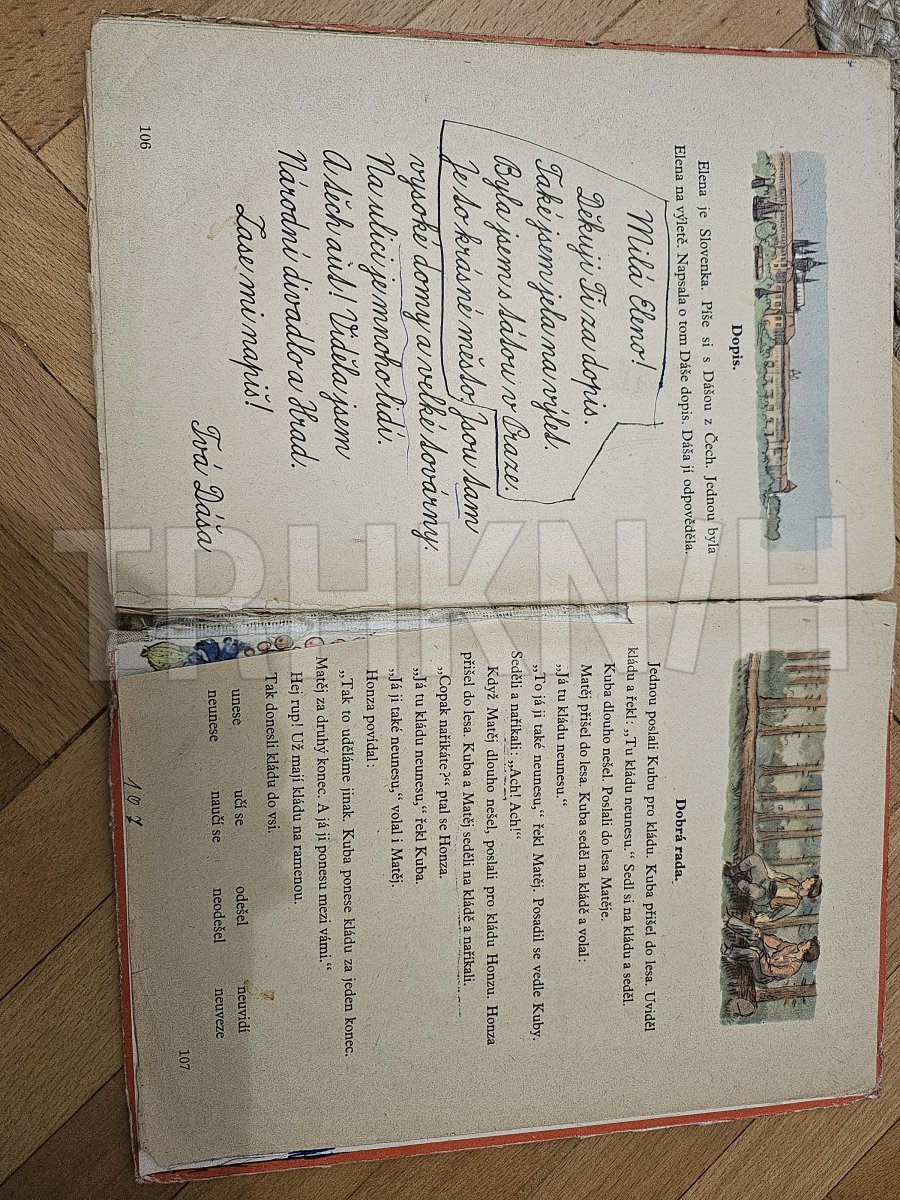 Dopis.
Elena je Slovenka. Píše si s Dášou z Čech. Jednou byla
Elena na výletě. Napsala o tom Dáše dopis. Dáša jí odpověděla.
Milá Eleno!
Děkuji Ti za dopis.
Také jsem jela na výlet.
Byla jsem s tátou v Praze.
Je to krásné město. Jsou tam
vysoké domy a velké továrny.
Na ulici je mnoho lidí.
A těch aut! Viděla jsem
Národní divadlo a Hrad.
Zase mi napiš!
Tvá Dáša
106
Dobrá rada.
Jednou poslali Kubu pro kládu. Kuba přišel do lesa. Uviděl
kládu a řekl: „Tu kládu neunesu.“ Sedl si na kládu a seděl.
Kuba dlouho nešel. Poslali do lesa Matěje.
Matěj přišel do lesa. Kuba seděl na kládě a volal:
„Já tu kládu neunesu.“
„To já ji také neunesu,“ řekl Matěj. Posadil se vedle Kuby.
Seděli a naříkali: „Ach! Ach!“
Když Matěj dlouho nešel, poslali pro kládu Honzu. Honza
přišel do lesa. Kuba a Matěj seděli na kládě a naříkali.
„Copak naříkáte?“ ptal se Honza.
„Já tu kládu neunesu,“ řekl Kuba.
„Já ji také neunesu,“ volal i Matěj.
Honza povídal:
„Tak to uděláme jinak. Kuba ponese kládu za jeden konec.
Matěj za druhý konec. A já ji ponesu mezi vámi.“
Hej rup! Už mají kládu na ramenou.
Tak donesli kládu do vsi.
unese učí se odešel neuvidí
neunese naučí se neodešel neuveze
107
107
TRHKNIH